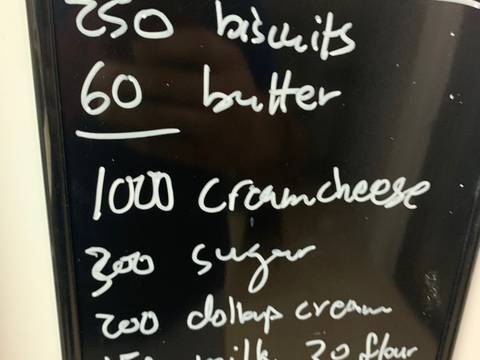 250 biscuits
60 butter
1000 creamcheese
300 sugar
200 dollop cream
milk 30 flour